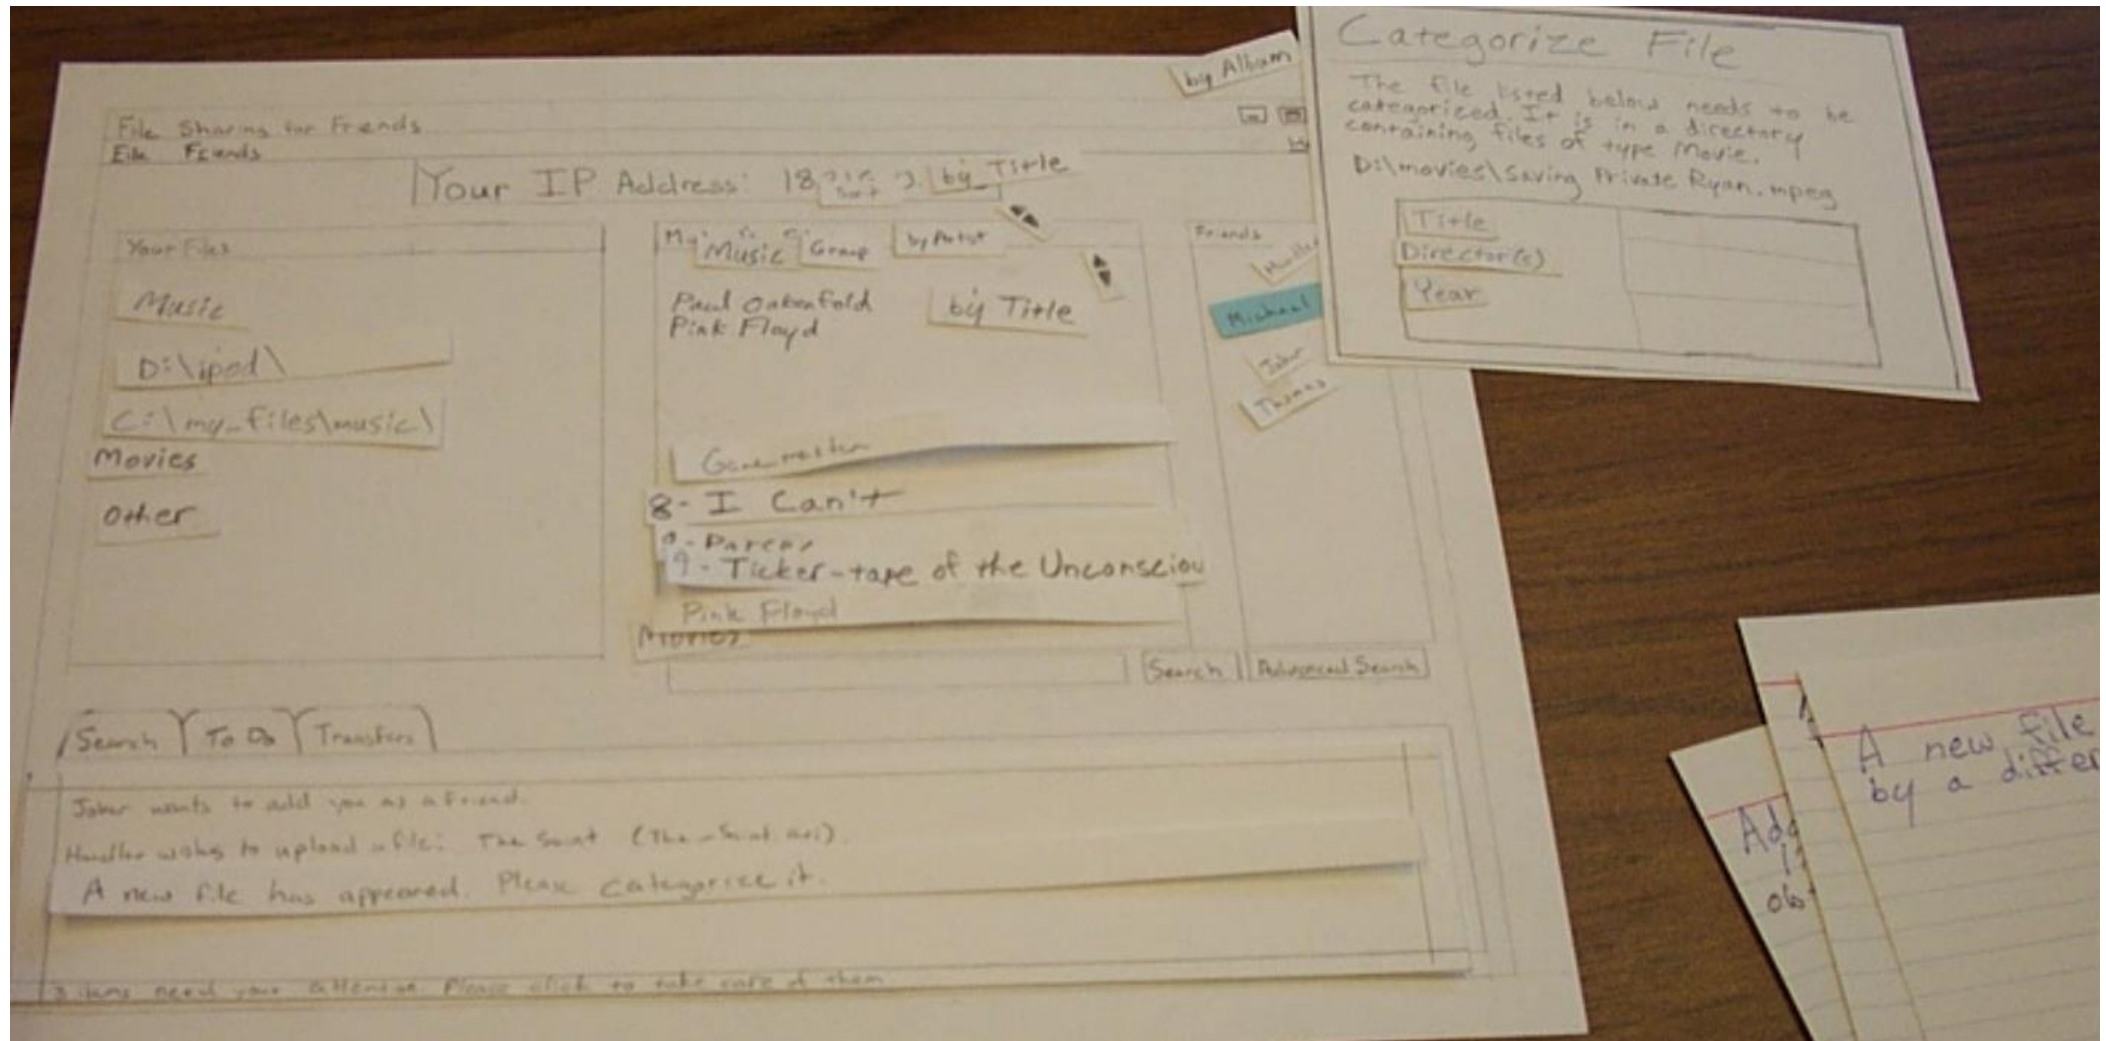 by Album
File Sharing for Friends
File Friends
Your IP Address: 18
by Title
Your Files
Music
D:\ipod\
C:\my_files\music\
Movies
Other
My
Music
Group
by Artist
Paul Oakenfold
Pink Floyd
by Title
8- I Can't
9- Ticker-tape of the Unconsciou
Pink Floyd
Movies
Friends
Michael
Thomas
Search
Advanced Search
Search
To Do
Transfers
wants to add you as a friend.
to upload a file: The Saint
A new file has appeared. Please categorize it.
3 items need your attention. Please click to take care of them
Categorize File
The file listed below needs to be
categorized. It is in a directory
containing files of type Movie.
D:\movies\Saving Private Ryan.mpeg
Title
Director(s)
Year
A new file
by a differ